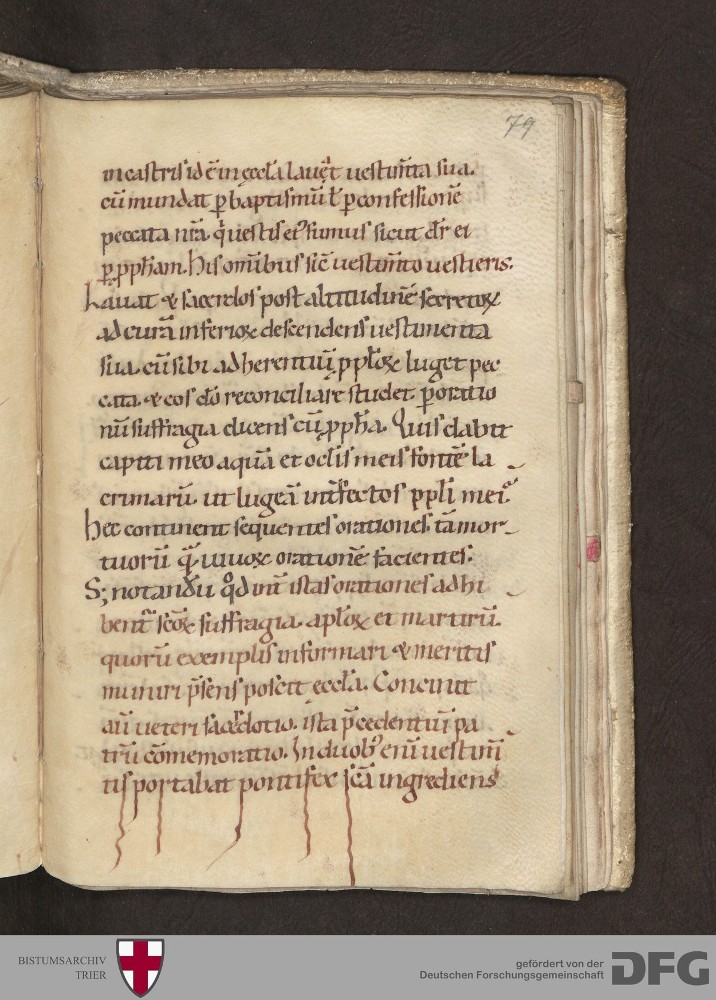 79
in castris id ē in ęccl̄a lauer̄t uestim̄ta sua.
cū mundat ꝑ baptismū ł ꝑ confessionē
peccata nr̄a. qͥ uestis eiꝰ sumus sicut dr̄ ei
ꝑ ꝓph̄am. His om̄ibus sic̄ uestim̄to uestieris.
Lauat & sacerdos post altitudinē secretoꝝ
ad curā inferioꝝ descendens uestimenta
sua. cū sibi adherentiū ꝓ pl̄oꝝ luget pec
cata. & eos dō reconciliare studet. ꝑ oratio
nū suffragia dicens cū ꝓph̄a. Quis dabit
capiti meo aquā et ocl̄is meis fontē la
crimarū. ut lugeā int̄fectos ppl̄i mei.
Hec continent sequentes orationes. tā mor
tuorū qͣ̄ uiuoꝝ orationē facientes.
S; notandū qͦd int̄ istas orationes adhi
bent͛ sc̄oꝝ suffragia. apl̄oꝝ et martirū.
quorū exemplis informari & meritis
muniri p̄sens poscit eccl̄a. Concinit
aū ueteri sac̄dotio. ista p̄cedentiū pa
trū cōmemoratio. In duobꝰ enī uestim̄
tis portabat pontifex sc̄ā ingrediens
BISTUMSARCHIV
TRIER
gefördert von der
Deutschen Forschungsgemeinschaft
DFG